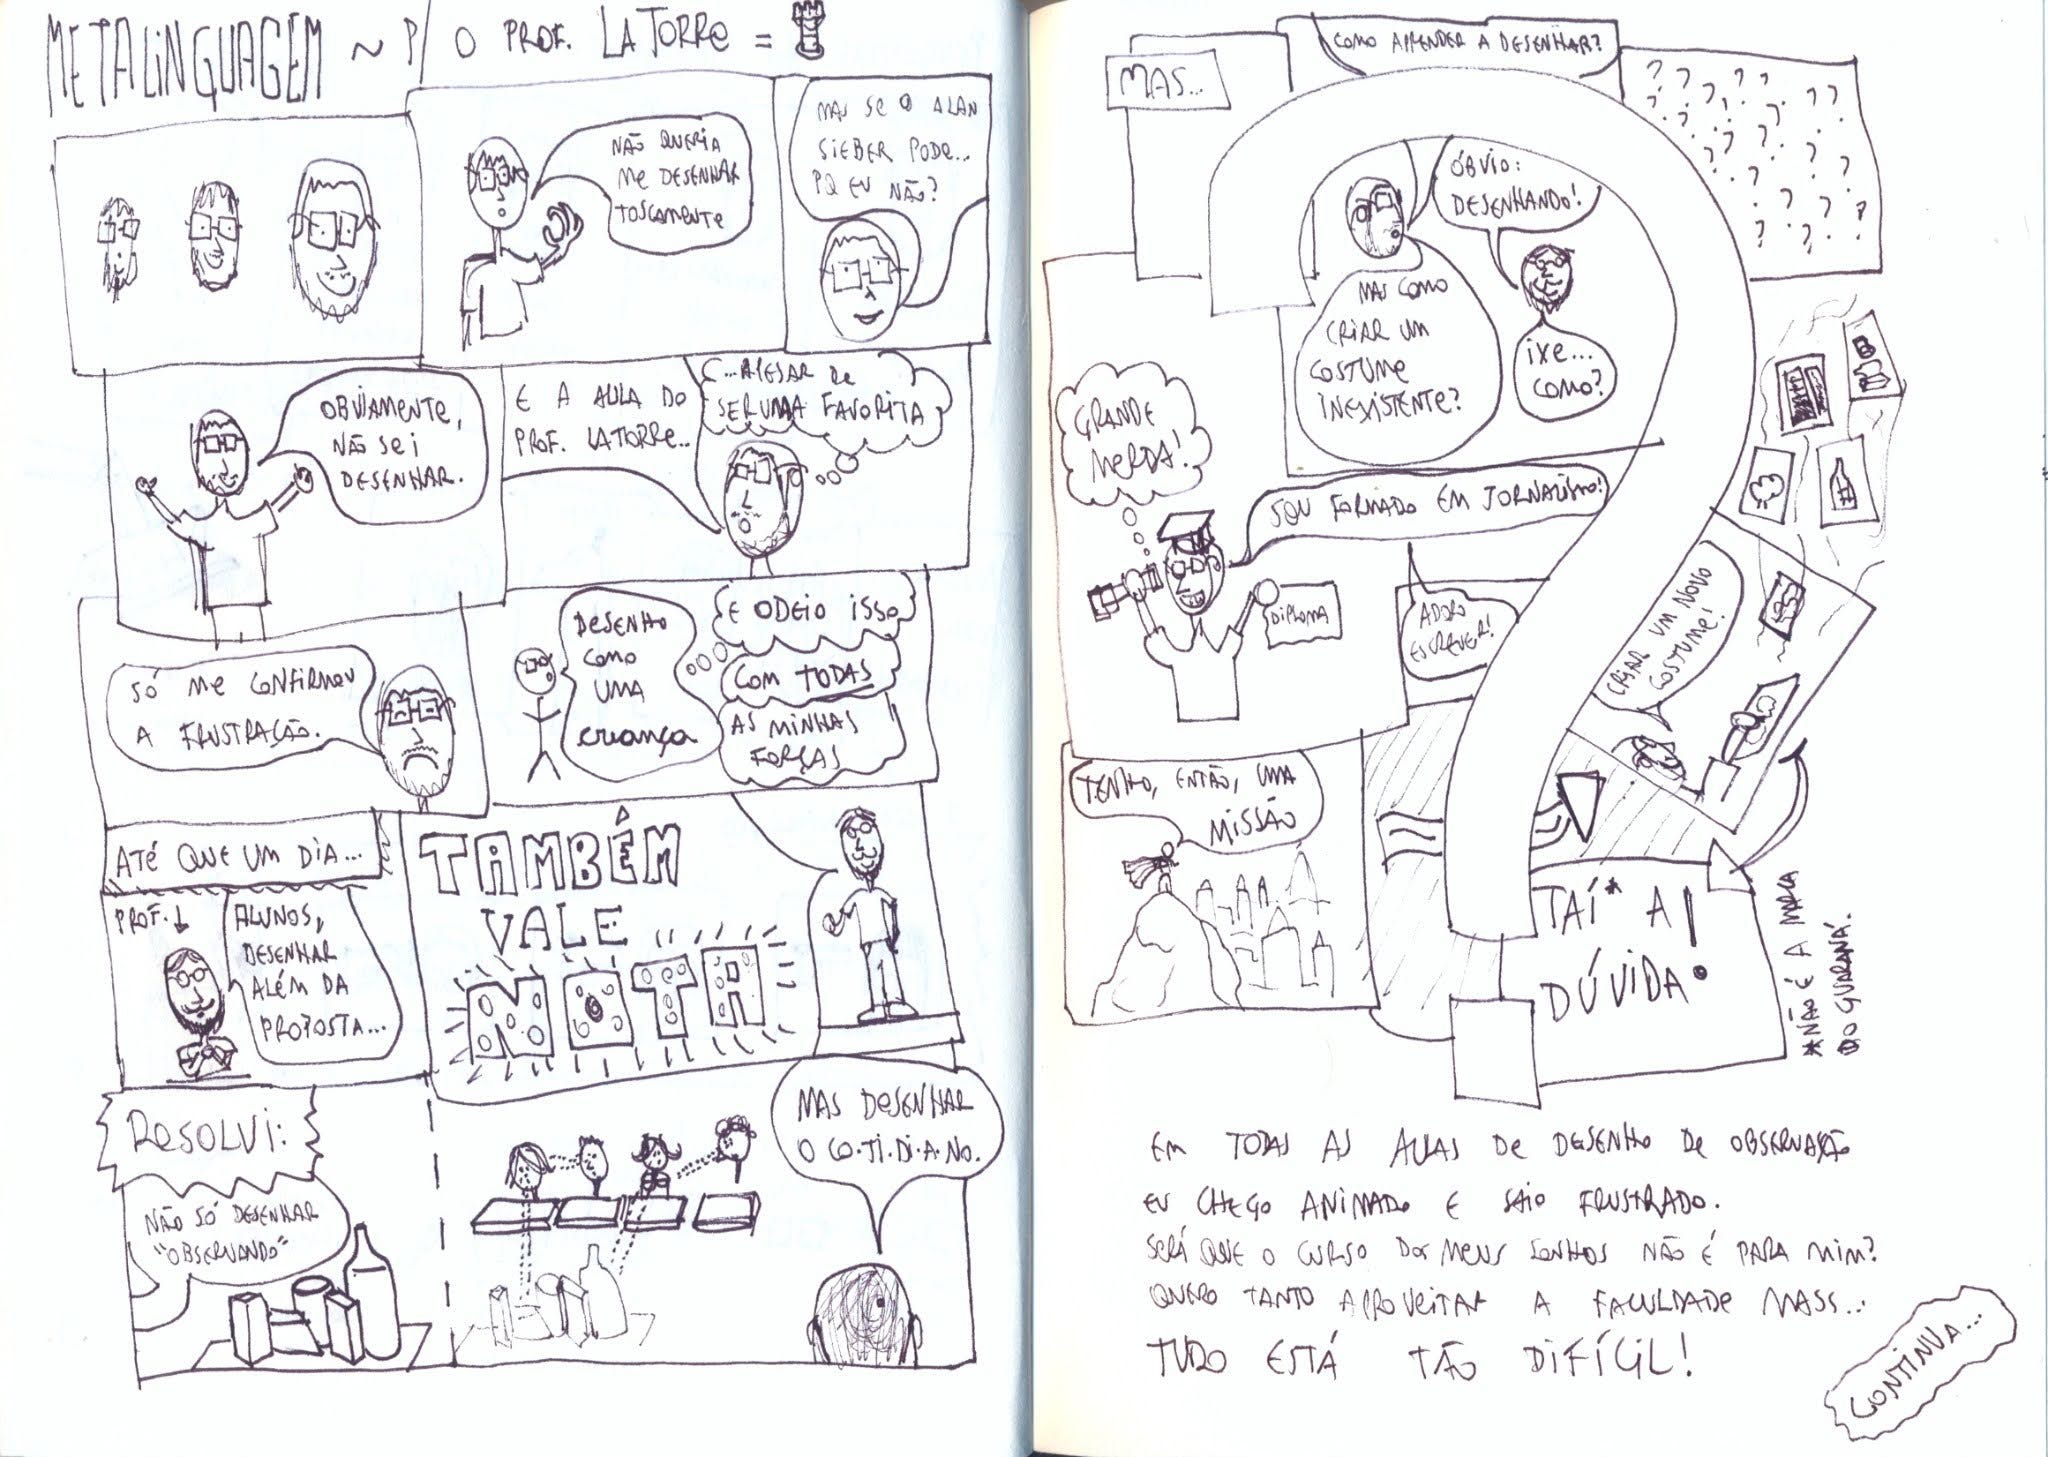 METALINGUAGEM ~ P/ O PROF. LATORRE =
NÃO QUERIA
ME DESENHAR
TOSCAMENTE
MAS SE O ALAN
SIEBER PODE...
PQ EU NÃO?
OBVIAMENTE,
NÃO SEI
DESENHAR.
E A AULA DO
PROF. LATORRE...
...APESAR DE
SER UMA FAVORITA
SÓ ME CONFIRMOU
A FRUSTRAÇÃO.
DESENHO
COMO
UMA
CRIANÇA
E ODEIO ISSO
COM TODAS
AS MINHAS
FORÇAS
ATÉ QUE UM DIA...
PROF.
ALUNOS,
DESENHAR
ALÉM DA
PROPOSTA...
TAMBÉM
VALE
NOTA
RESOLVI:
NÃO SÓ DESENHAR
"OBSERVANDO"
MAS DESENHAR
O CO.TI.DI.A.NO.
MAS...
COMO APRENDER A DESENHAR?
? ? ? ? ? ? ? ? ? ?
ÓBVIO:
DESENHANDO!
MAS COMO
CRIAR UM
COSTUME
INEXISTENTE?
IXE...
COMO?
GRANDE
MERDA!
SOU FORMADO EM JORNALISMO!
DIPLOMA
ADORO
ESCREVER!
CRIAR UM NOVO
COSTUME!
TENHO, ENTÃO, UMA
MISSÃO
TAÍ* A
DÚVIDA!
*NÃO É A MARCA
DO GUARANÁ.
EM TODAS AS AULAS DE DESENHO DE OBSERVAÇÃO
EU CHEGO ANIMADO E SAIO FRUSTRADO.
SERÁ QUE O CURSO DOS MEUS SONHOS NÃO É PARA MIM?
QUERO TANTO APROVEITAR A FACULDADE MASS...
TUDO ESTÁ TÃO DIFÍCIL!
CONTINUA...